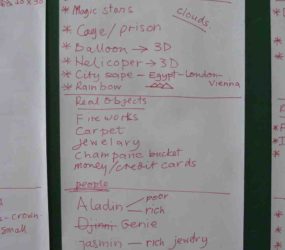 * Magic stars
clouds.
* Cage/prison
* Balloon → 3D
* Helicoper → 3D
* City scape - Egypt - London - Vienna
* Rainbow
Real Objects
Fireworks
Carpet
Jewelary
Champane bucket
money/credit cards
people
Aladin poor
rich
Djinn Genie
Jasmin - rich jewlry
s-crown-
small